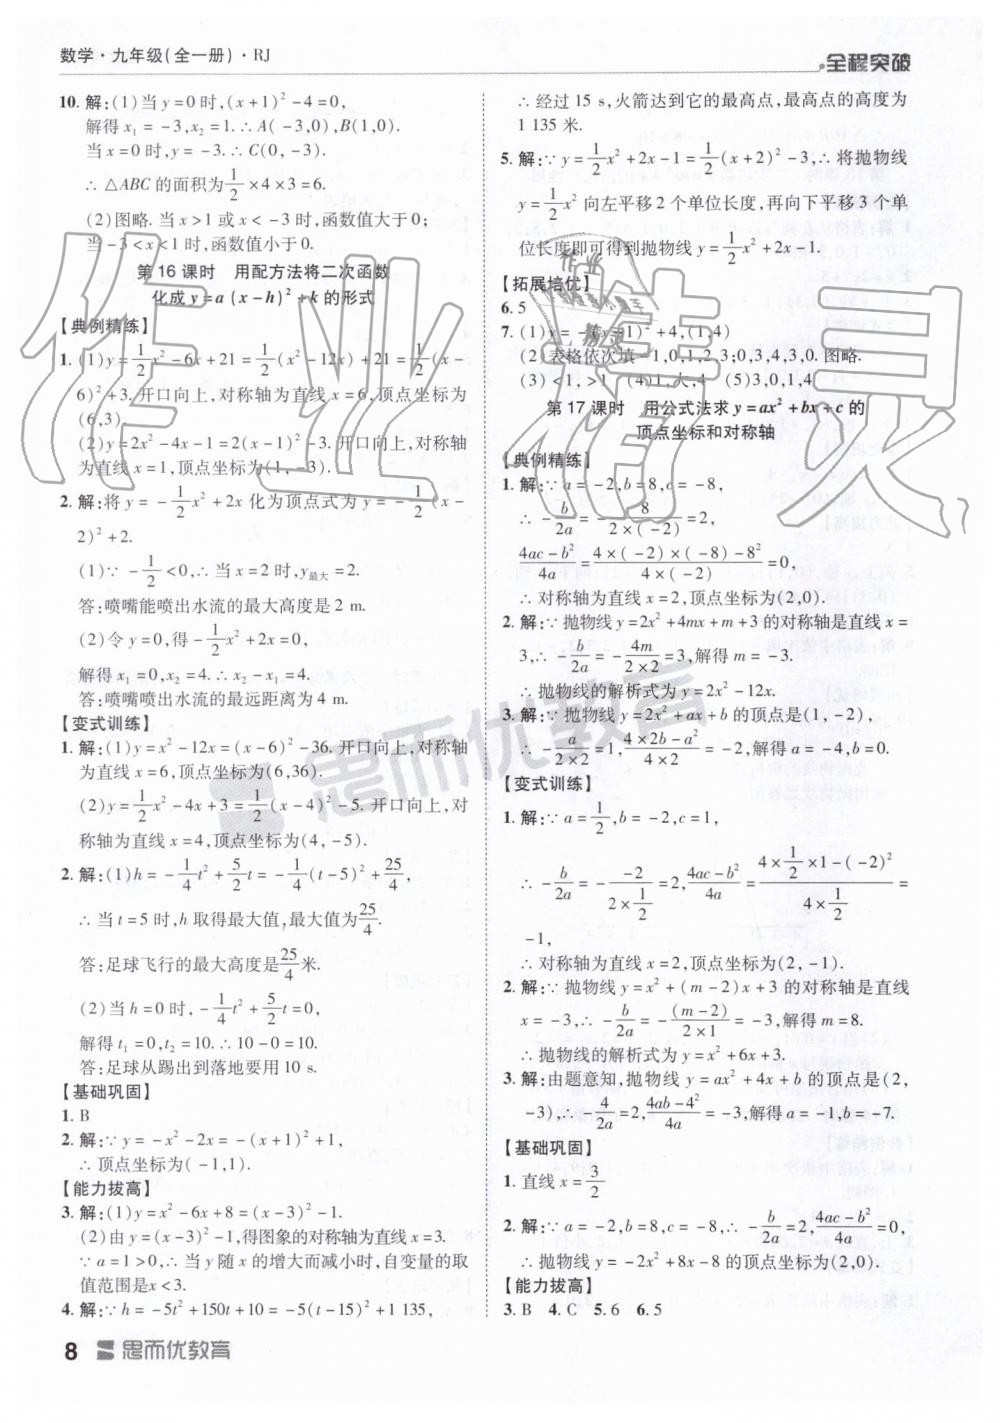 数学·九年级(全一册)·RJ
全程突破
10. 解:(1)当 y=0 时,(x+1)²-4=0,
解得 x₁=-3,x₂=1.∴A(-3,0),B(1,0).
当 x=0 时,y=-3.∴C(0,-3).
∴△ABC 的面积为1/2×4×3=6.
(2)图略. 当 x>1 或 x<-3 时,函数值大于 0;
当-3<x<1 时,函数值小于 0.
第 16 课时 用配方法将二次函数
化成 y=a(x-h)²+k 的形式
【典例精练】
1. (1)y=1/2x²-6x+21=1/2(x²-12x)+21=1/2(x-
6)²+3. 开口向上,对称轴为直线 x=6,顶点坐标为
(6,3).
(2)y=2x²-4x-1=2(x-1)²-3. 开口向上,对称轴
为直线 x=1,顶点坐标为(1,-3).
2. 解:将 y=-1/2x²+2x 化为顶点式为 y=-1/2(x-
2)²+2.
(1)∵-1/2<0,∴当 x=2 时,y最大=2.
答:喷嘴能喷出水流的最大高度是 2 m.
(2)令 y=0,得-1/2x²+2x=0,
解得 x₁=0,x₂=4.∴x₂-x₁=4.
答:喷嘴喷出水流的最远距离为 4 m.
【变式训练】
1. 解:(1)y=x²-12x=(x-6)²-36. 开口向上,对称轴
为直线 x=6,顶点坐标为(6,36).
(2)y=1/2x²-4x+3=1/2(x-4)²-5. 开口向上,对
称轴为直线 x=4,顶点坐标为(4,-5).
2. 解:(1)h=-1/4t²+5/2t=-1/4(t-5)²+25/4,
∴当 t=5 时,h 取得最大值,最大值为25/4.
答:足球飞行的最大高度是25/4米.
(2)当 h=0 时,-1/4t²+5/2t=0,
解得 t₁=0,t₂=10.∴10-0=10.
答:足球从踢出到落地要用 10 s.
【基础巩固】
1. B
2. 解:∵y=-x²-2x=-(x+1)²+1,
∴顶点坐标为(-1,1).
【能力拔高】
3. 解:(1)y=x²-6x+8=(x-3)²-1.
(2)由 y=(x-3)²-1,得图象的对称轴为直线 x=3.
∵a=1>0,∴当 y 随 x 的增大而减小时,自变量的取
值范围是 x<3.
4. 解:∵h=-5t²+150t+10=-5(t-15)²+1 135,
∴经过 15 s,火箭达到它的最高点,最高点的高度为
1 135 米.
5. 解:∵y=1/2x²+2x-1=1/2(x+2)²-3,∴将抛物线
y=1/2x² 向左平移 2 个单位长度,再向下平移 3 个单
位长度即可得到抛物线 y=1/2x²+2x-1.
【拓展培优】
6. 5
7. (1)y=-(x-1)²+4,(1,4)
(2)表格依次填-1,0,1,2,3;0,3,4,3,0. 图略.
(3)<1,>1 (4)1,大,4 (5)3,0,1,4
第 17 课时 用公式法求 y=ax²+bx+c 的
顶点坐标和对称轴
【典例精练】
1. 解:∵a=-2,b=8,c=-8,
∴-b/2a=-8/(2×(-2))=2,
(4ac-b²)/4a=(4×(-2)×(-8)-8²)/(4×(-2))=0,
∴对称轴为直线 x=2,顶点坐标为(2,0).
2. 解:∵抛物线 y=2x²+4mx+m+3 的对称轴是直线 x=
3,∴-b/2a=-4m/(2×2)=3,解得 m=-3.
∴抛物线的解析式为 y=2x²-12x.
3. 解:∵抛物线 y=2x²+ax+b 的顶点是(1,-2),
∴-a/(2×2)=1,(4×2b-a²)/(4×2)=-2,解得 a=-4,b=0.
【变式训练】
1. 解:∵a=1/2,b=-2,c=1,
∴-b/2a=-(-2)/(2×1/2)=2,(4ac-b²)/4a=(4×1/2×1-(-2)²)/(4×1/2)=
-1,
∴对称轴为直线 x=2,顶点坐标为(2,-1).
2. 解:∵抛物线 y=x²+(m-2)x+3 的对称轴是直线
x=-3,∴-b/2a=-(m-2)/(2×1)=-3,解得 m=8.
∴抛物线的解析式为 y=x²+6x+3.
3. 解:由题意知,抛物线 y=ax²+4x+b 的顶点是(2,
-3).∴-4/2a=2,(4ab-4²)/4a=-3,解得 a=-1,b=-7.
【基础巩固】
1. 直线 x=3/2
2. 解:∵a=-2,b=8,c=-8,∴-b/2a=2,(4ac-b²)/4a=0,
∴抛物线 y=-2x²+8x-8 的顶点坐标为(2,0).
【能力拔高】
3. B 4. C 5. 6 6. 5
8 思而优教育
思而优教育
作业精灵